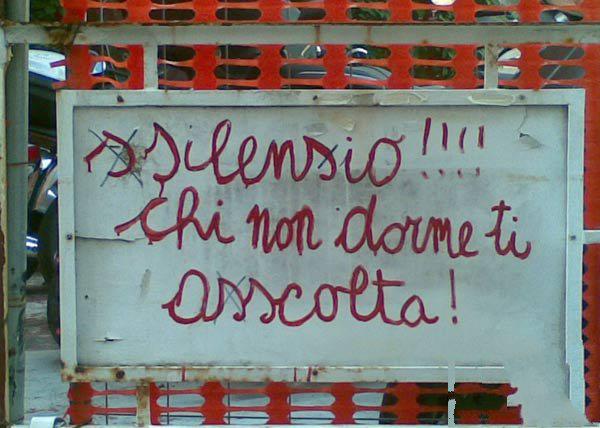 sSilenzio!!!!
chi non dorme ti
asscolta!